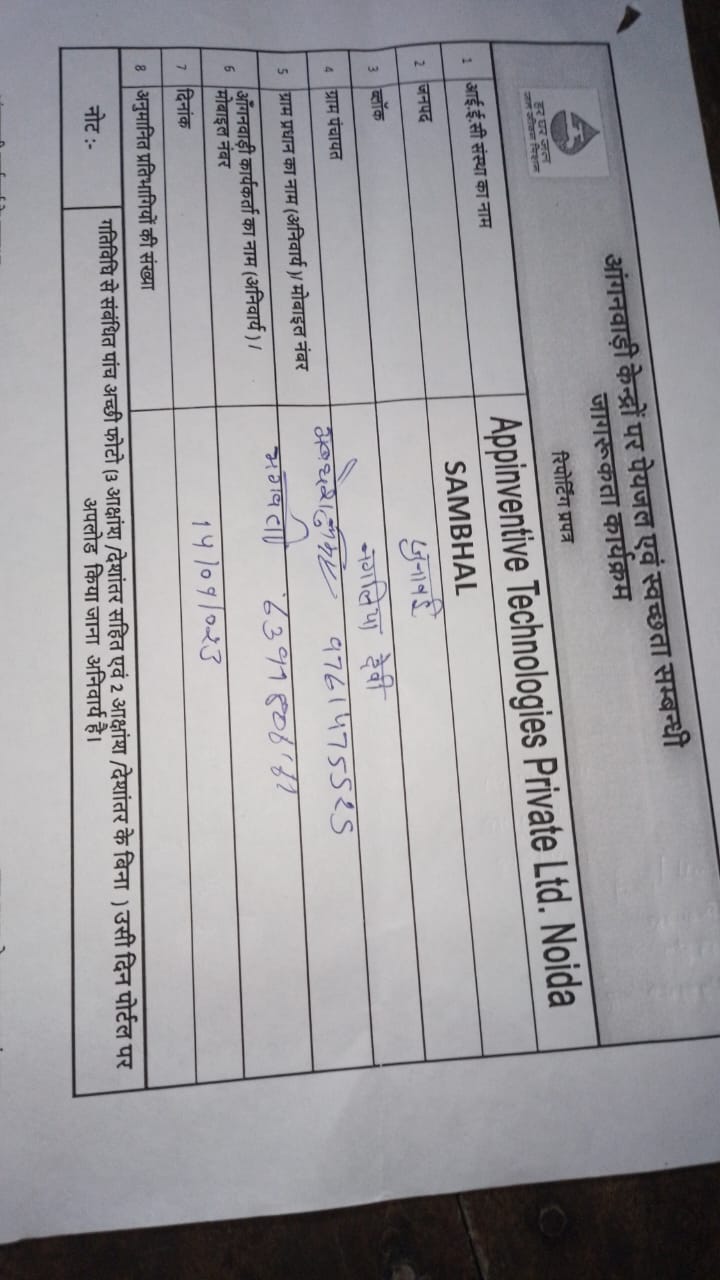 हर घर जल
जल जीवन मिशन
आंगनवाड़ी केन्द्रों पर पेयजल एवं स्वच्छता सम्बन्धी
जागरूकता कार्यक्रम
रिपोर्टिंग प्रपत्र
1 आई.ई.सी संस्था का नाम Appinventive Technologies Private Ltd. Noida
2 जनपद SAMBHAL
3 ब्लॉक जुनावई
4 ग्राम पंचायत नगलिया देवी
5 ग्राम प्रधान का नाम (अनिवार्य)/ मोबाइल नंबर 9761475525
6 आँगनवाड़ी कार्यकर्ता का नाम (अनिवार्य ) /
मोबाइल नंबर भगवती
7 दिनांक 14/09/023
8 अनुमानित प्रतिभागियों की संख्या
नोट :- गतिविधि से संबंधित पांच अच्छी फोटो (3 आक्षांश /देशांतर सहित एवं 2 आक्षांश /देशांतर के बिना ) उसी दिन पोर्टल पर
अपलोड किया जाना अनिवार्य है।